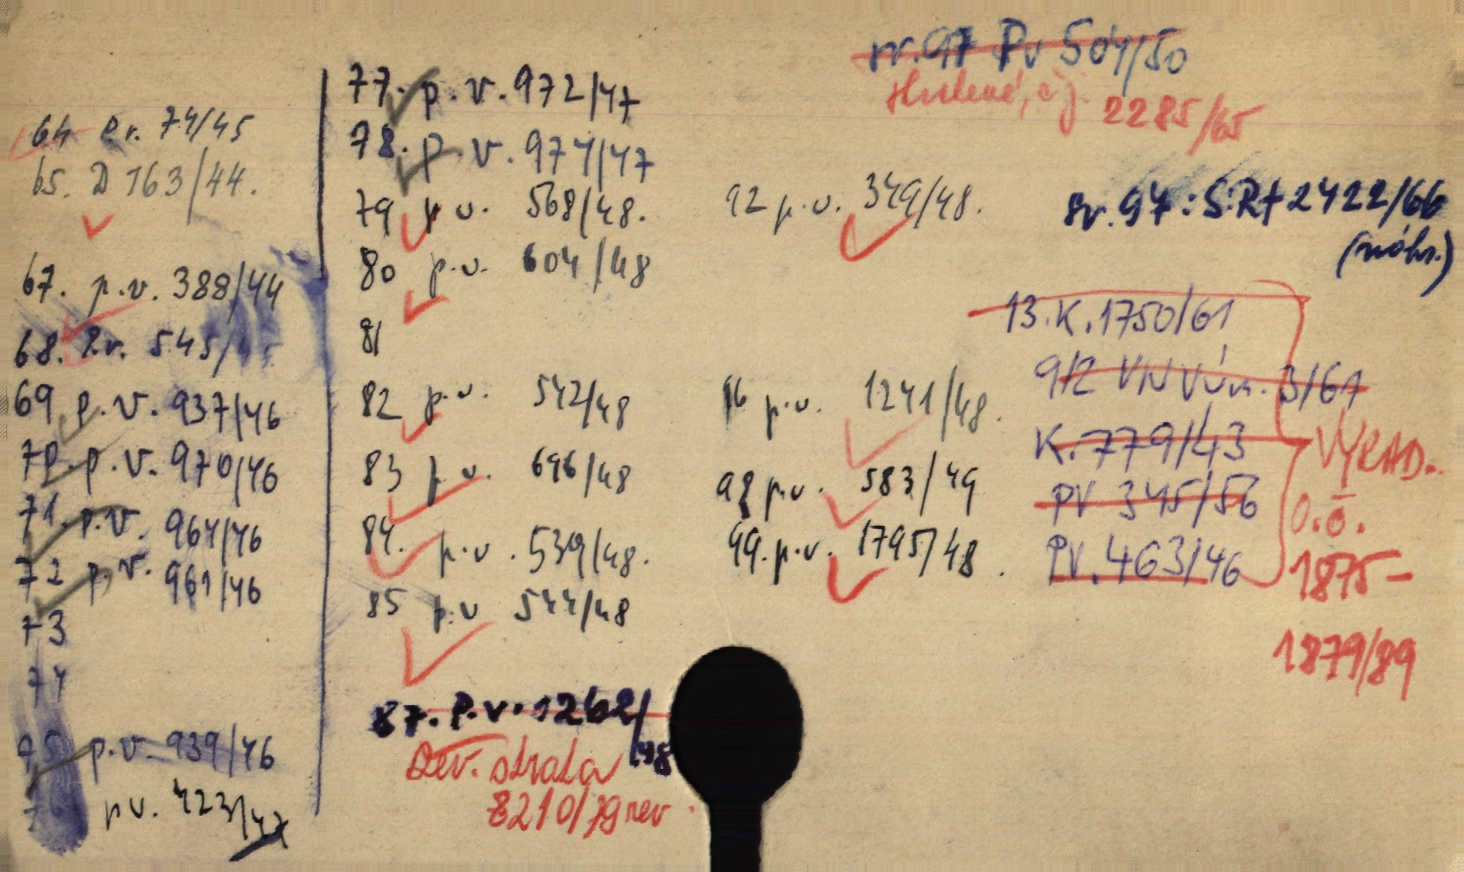 64 Pr. 74/45
65. D 163/44.
67. p.v. 388/44
68. Pr. 545/
69 p.v. 937/46
70. p.v. 970/46
71. p.v. 964/46
72 p.v. 961/46
73
74
75 p.v. 939/46
p.v. 423/47
77. p.v. 972/47
78. p.v. 974/47
79 p.v. 568/48.
80 p.v. 604/48
81
82 p.v. 542/48
83 p.v. 696/48
84. p.v. 539/48.
85 p.v. 544/48
87. P.v. 1262/48
Dev. strata
8210/79 rev
92 p.v. 349/48.
96 p.v. 1241/48.
98 p.v. 583/49
99. p.v. 1795/48.
sv. 97 Pv 504/50
čj. 2285/65
sv. 97: S.Rt 2422/66
(náhr.)
13. K. 1750/61
9/2 VN Vún. 3/61
K. 779/43
PV 345/56
PV. 463/46
VYRAD.
O.Ö.
1875-
1879/89